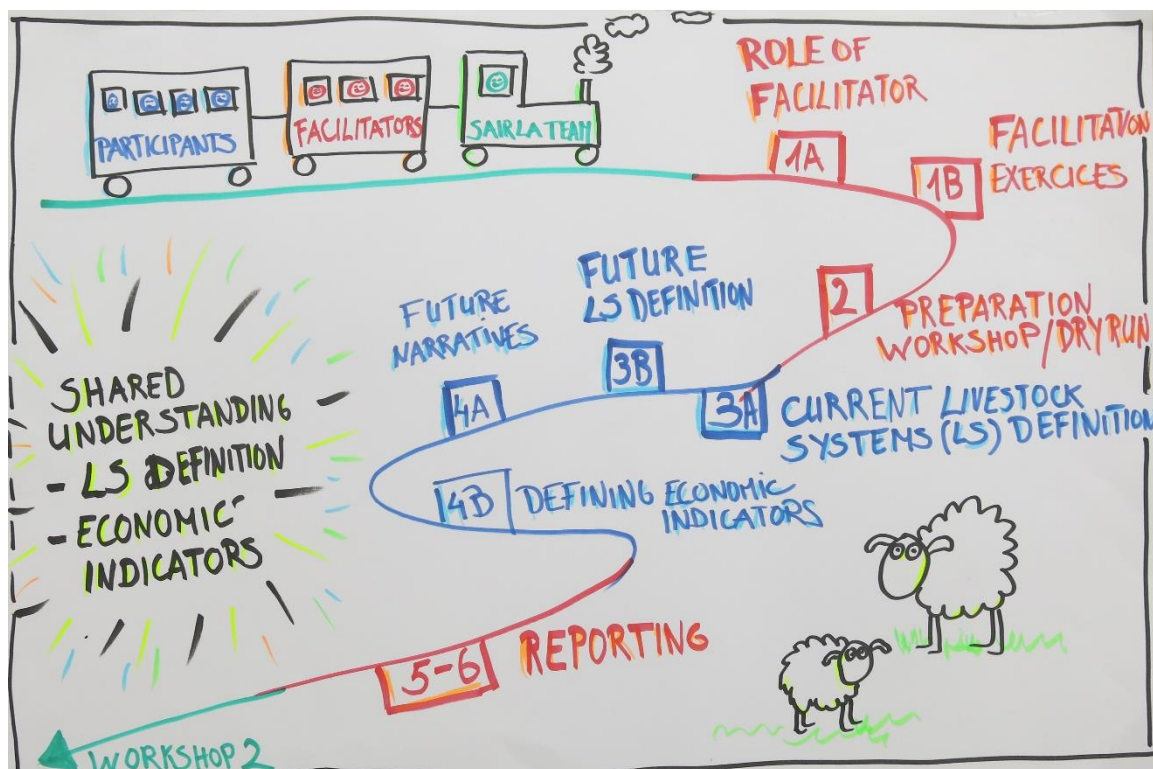 PARTICIPANTS
FACILITATORS
SAIRLA TEAM
ROLE OF
FACILITATOR
1A
1B
FACILITATION
EXERCICES
2
PREPARATION
WORKSHOP/DRY RUN
3A
CURRENT LIVESTOCK
SYSTEMS (LS) DEFINITION
FUTURE
LS DEFINITION
3B
FUTURE
NARRATIVES
4A
4B
DEFINING ECONOMIC
INDICATORS
SHARED
UNDERSTANDING
- LS DEFINITION
- ECONOMIC
INDICATORS
5-6
REPORTING
WORKSHOP 2